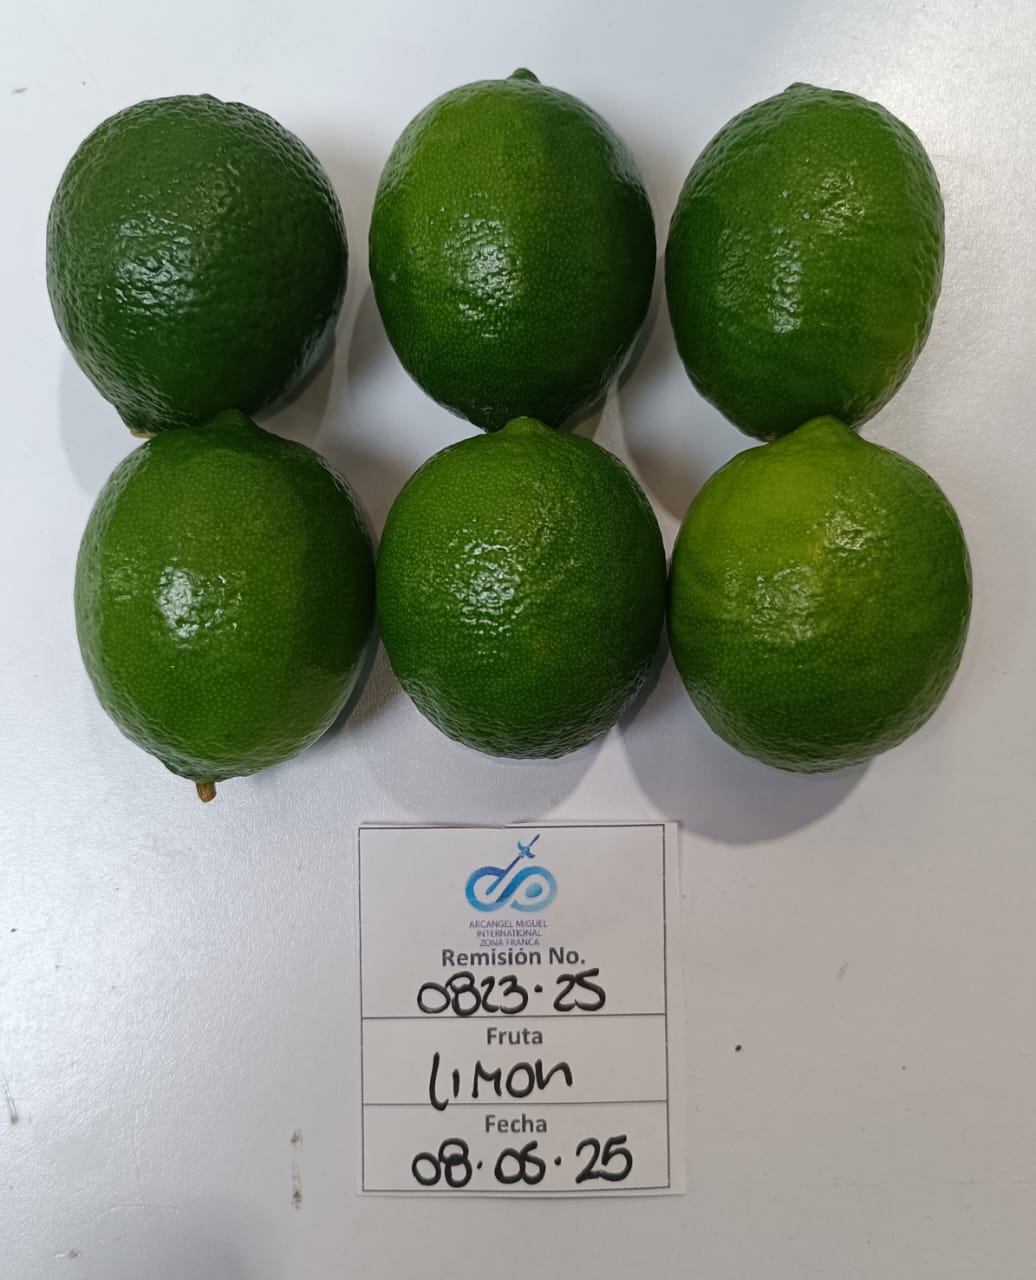 ARCANGEL MIGUEL
INTERNATIONAL
ZONA FRANCA
Remisión No.
0823·25
Fruta
LIMON
Fecha
08·05·25